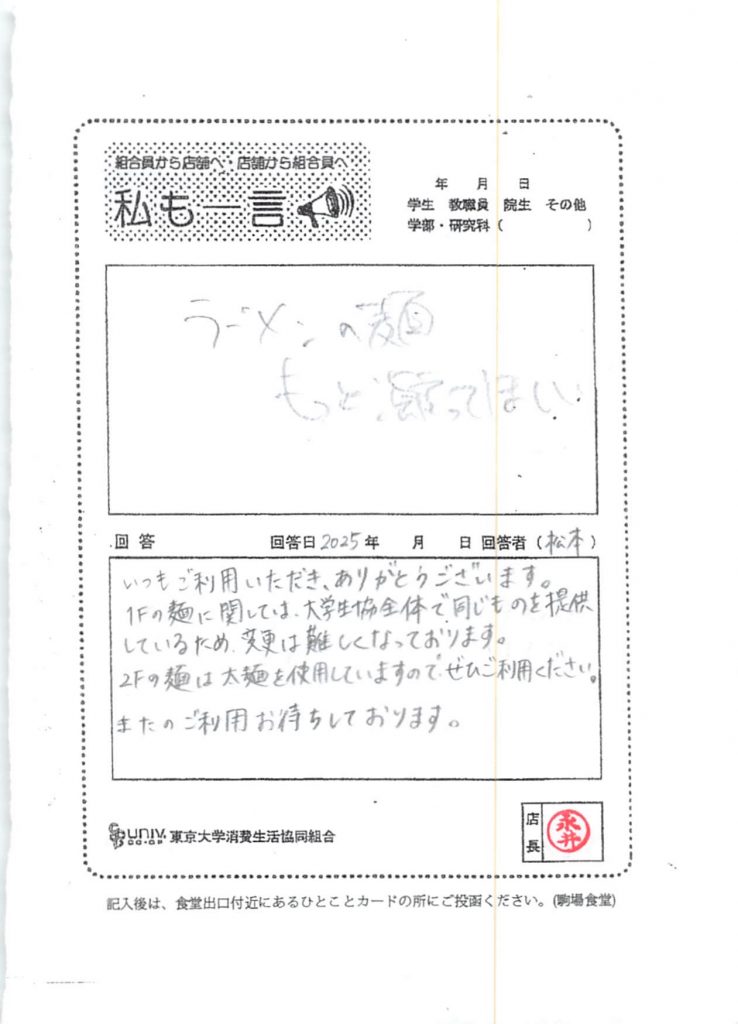 組合員から店舗へ・店舗から組合員へ
私も一言
年 月 日
学生 教職員 院生 その他
学部・研究科 ( )
ラーメンの麺
もっと ってほしい
回答 回答日 2025年 月 日 回答者 (松本)
いつもご利用いただき、ありがとうございます。
1Fの麺に関しては、大学生協全体で同じものを提供
しているため、変更は難しくなっております。
2Fの麺は太麺を使用していますので、ぜひご利用ください。
またのご利用お待ちしております。
UNIV. CO-OP 東京大学消費生活協同組合
店長 永井
記入後は、食堂出口付近にあるひとことカードの所にご投函ください。(駒場食堂)